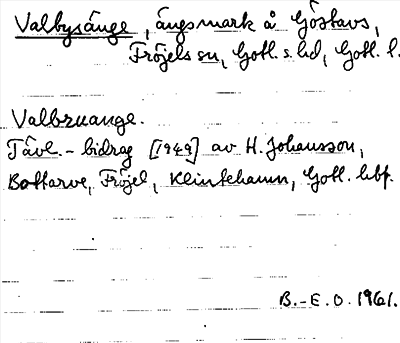 Valbysänge, ängsmark å Göstavs,
Fröjels sn, Gotl. s. hd, Gotl. l.
Valbruange.
Tävl.-bidrag [1949] av H. Johansson,
Bottarve, Fröjel, Klintehamn, Gotl. hbf.
B.-E. O. 1961.